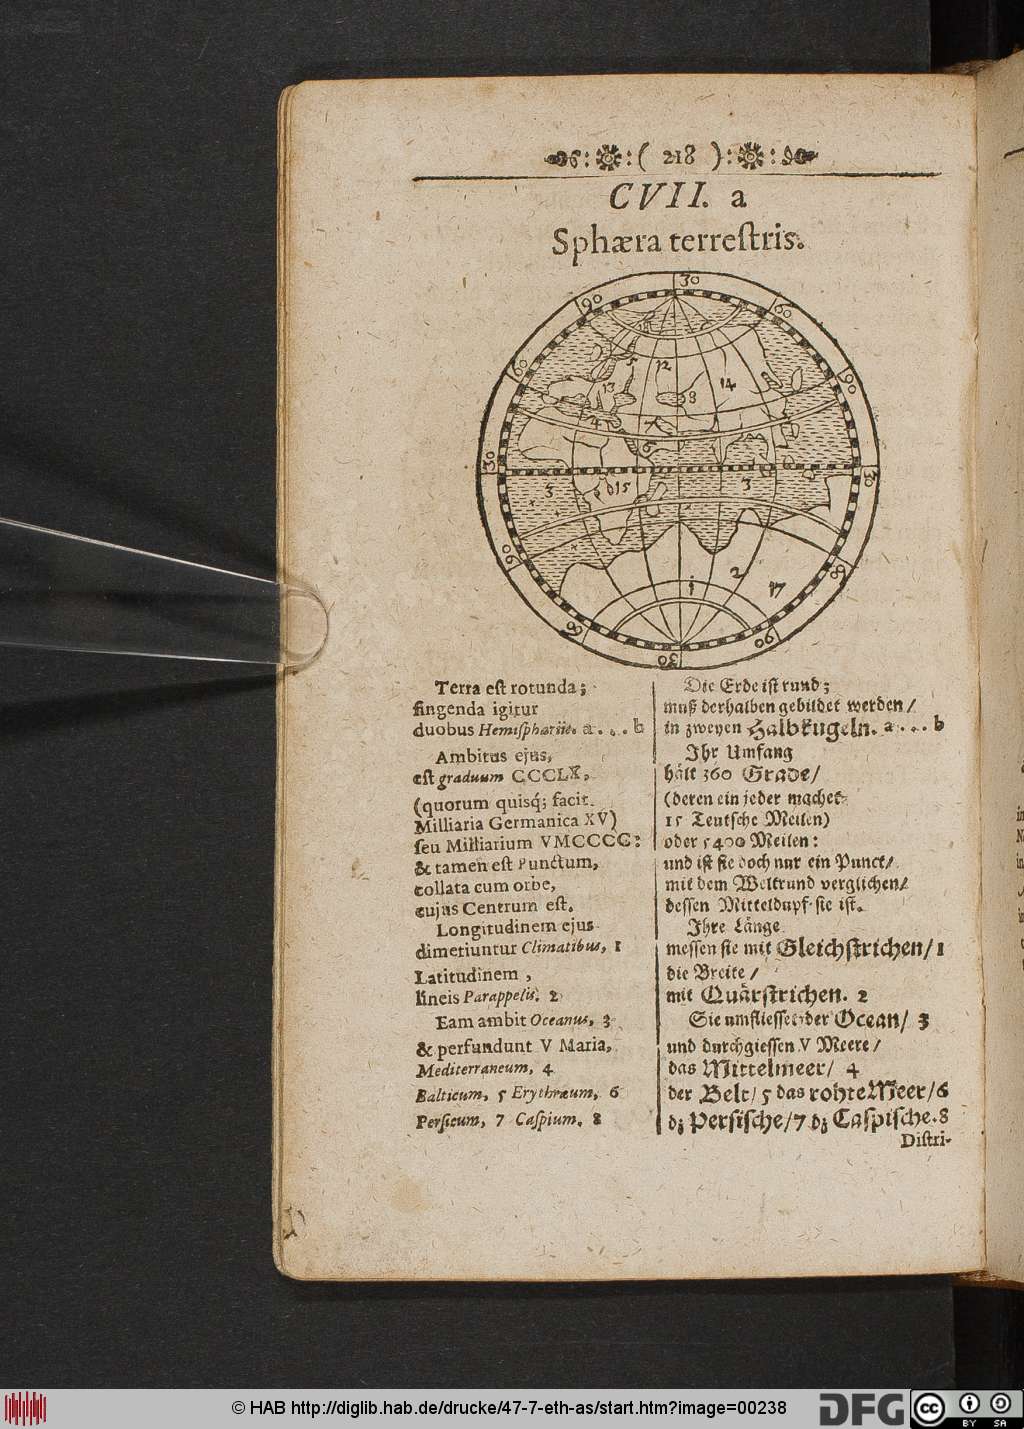 ( 218 )
CVII. a
Sphæra terreſtris.
30
90
60
60
90
5
12
13
14
8
4
7
6
30
30
3
15
3
90
60
1
2
17
60
90
30
Terra eſt rotunda;
fingenda igitur
duobus Hemiſphæriis. a . . . b
Ambitus ejus,
eſt graduum CCCLX,
(quorum quisq́; facit
Milliaria Germanica XV)
ſeu Milliarium VMCCCC:
& tamen eſt Punctum,
collata cum orbe,
cujus Centrum eſt.
Longitudinem ejus
dimetiuntur Climatibus, 1
Latitudinem,
lineis Parappelis. 2
Eam ambit Oceanus, 3
& perfundunt V Maria,
Mediterraneum, 4
Balticum, 5 Erythræum, 6
Perſicum, 7 Caſpium. 8
Die Erde iſt rund;
muß derhalben gebildet werden/
in zweyen Halbkugeln. a . . . b
Ihr Umfang
hält 360 Grade/
(deren ein jeder machet
15 Teutſche Meilen)
oder 5400 Meilen:
und iſt ſie doch nur ein Punct/
mit dem Weltrund verglichen/
deſſen Mitteldupf ſie iſt.
Ihre Länge
meſſen ſie mit Gleichſtrichen/ 1
die Breite/
mit Quärſtrichen. 2
Sie umflieſſet der Ocean/ 3
und durchgieſſen V Meere/
das Mittelmeer/ 4
der Belt/ 5 das rohte Meer/ 6
dz Perſiſche/ 7 dz Caſpiſche. 8
Diſtri-
© HAB http://diglib.hab.de/drucke/47-7-eth-as/start.htm?image=00238
DFG
cc
BY SA